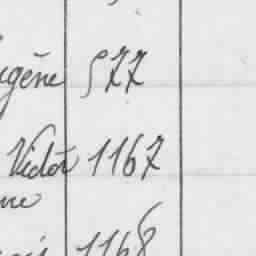 ugène 577
Victor 1167
ne
1168